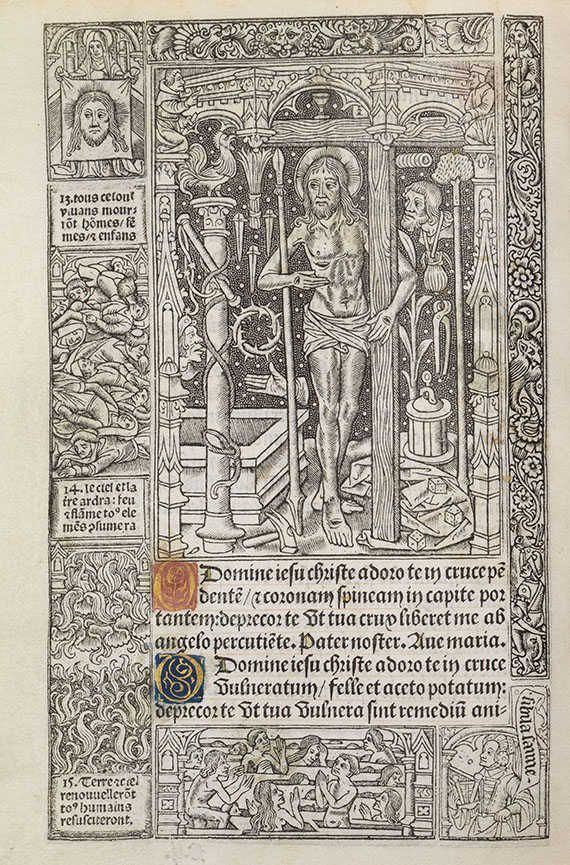 13. tous celoūt
viuans mour-
rōt hōmes / fē
mes / ⁊ enfans
14. le ciel et la
tre ardra: feu
⁊ flāme toꝰ ele
mēs ꝯsumera
15. Terre ⁊ ciel
renouuellerōt
toꝰ humains
resusciteront.
Domine iesu christe adoro te in cruce pē
dentē / ⁊ coronam spineam in capite por
tantem: deprecor te Ut tua crux liberet me ab
angelo percutiēte. Pater noster. Aue maria.
Domine iesu christe adoro te in cruce
Vulneratum / felle et aceto potatum:
deprecor te Ut tua Vulnera sint remediū ani-